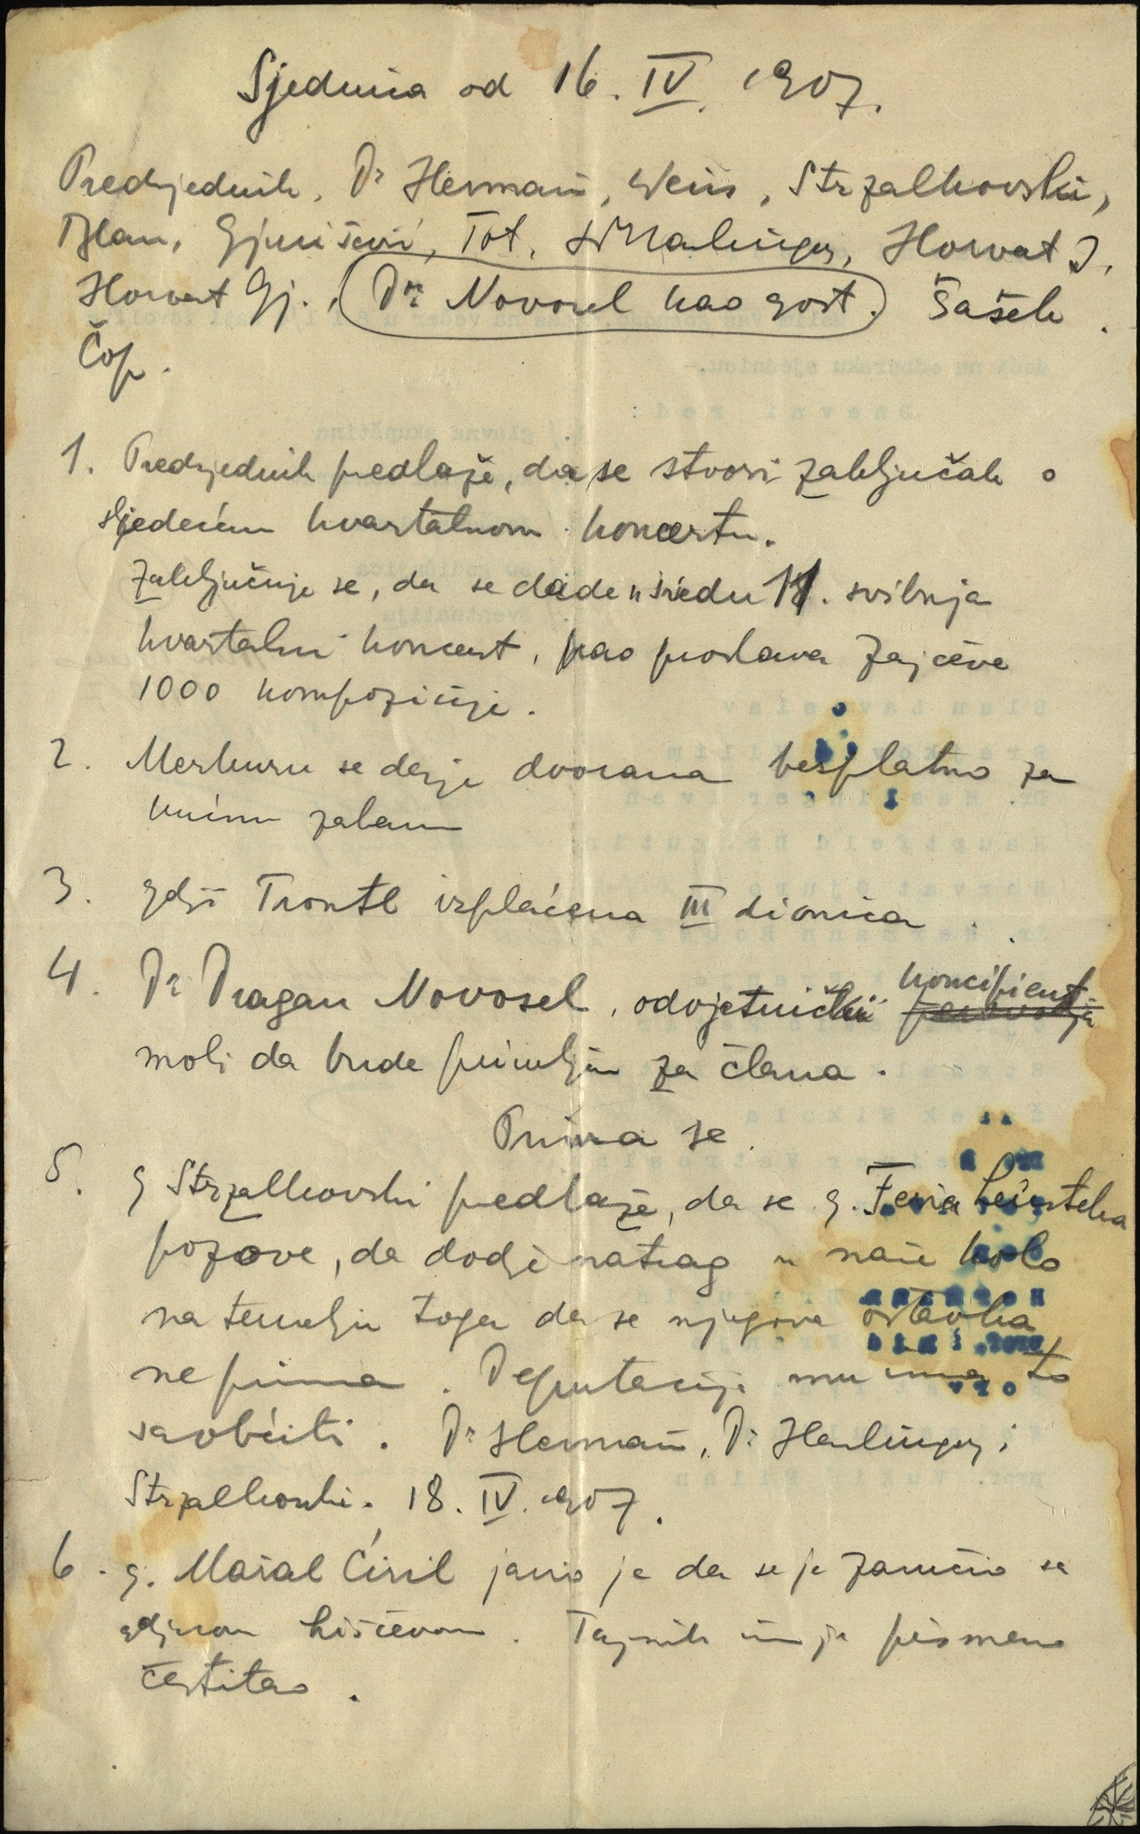 Sjednica od 16. IV. 1907.
Predsjednik, Dr Herman, Weiss, Strzalkovski,
Blau, Gjurišević, Tot, Horvat J.
Horvat Gj., Dr. Novosel kao gost. Šašek.
Čop.
1. Predsjednik predlaže, da se stvori zaključak o
sljedećem kvartalnom koncertu.
Zaključuje se, da se dade u sredu 11. svibnja
kvartalni koncert, kao proslava Zajčeve
1000 kompozicije.
2. Merkuru se daje dvorana besplatno za
kućnu zabavu
3. gdji Trontl isplaćena III dionica
4. Dr Dragan Novosel, odvjetnički koncipient
moli da bude primljen za člana.
Prima se.
5. g Strzalkovski predlaže, da se g.
pozove, da dodje natrag u naše kolo
na temelju toga da se njegova ostavka
ne prima. Deputacija mu ima to
saobćiti. Dr Herman, Dr i
Strzalkovski. 18. IV. 1907.
6. g. Mašal Ćiril javio je da se je zaručio sa
gdjicom. Tajnik im je pismeno
čestitao.